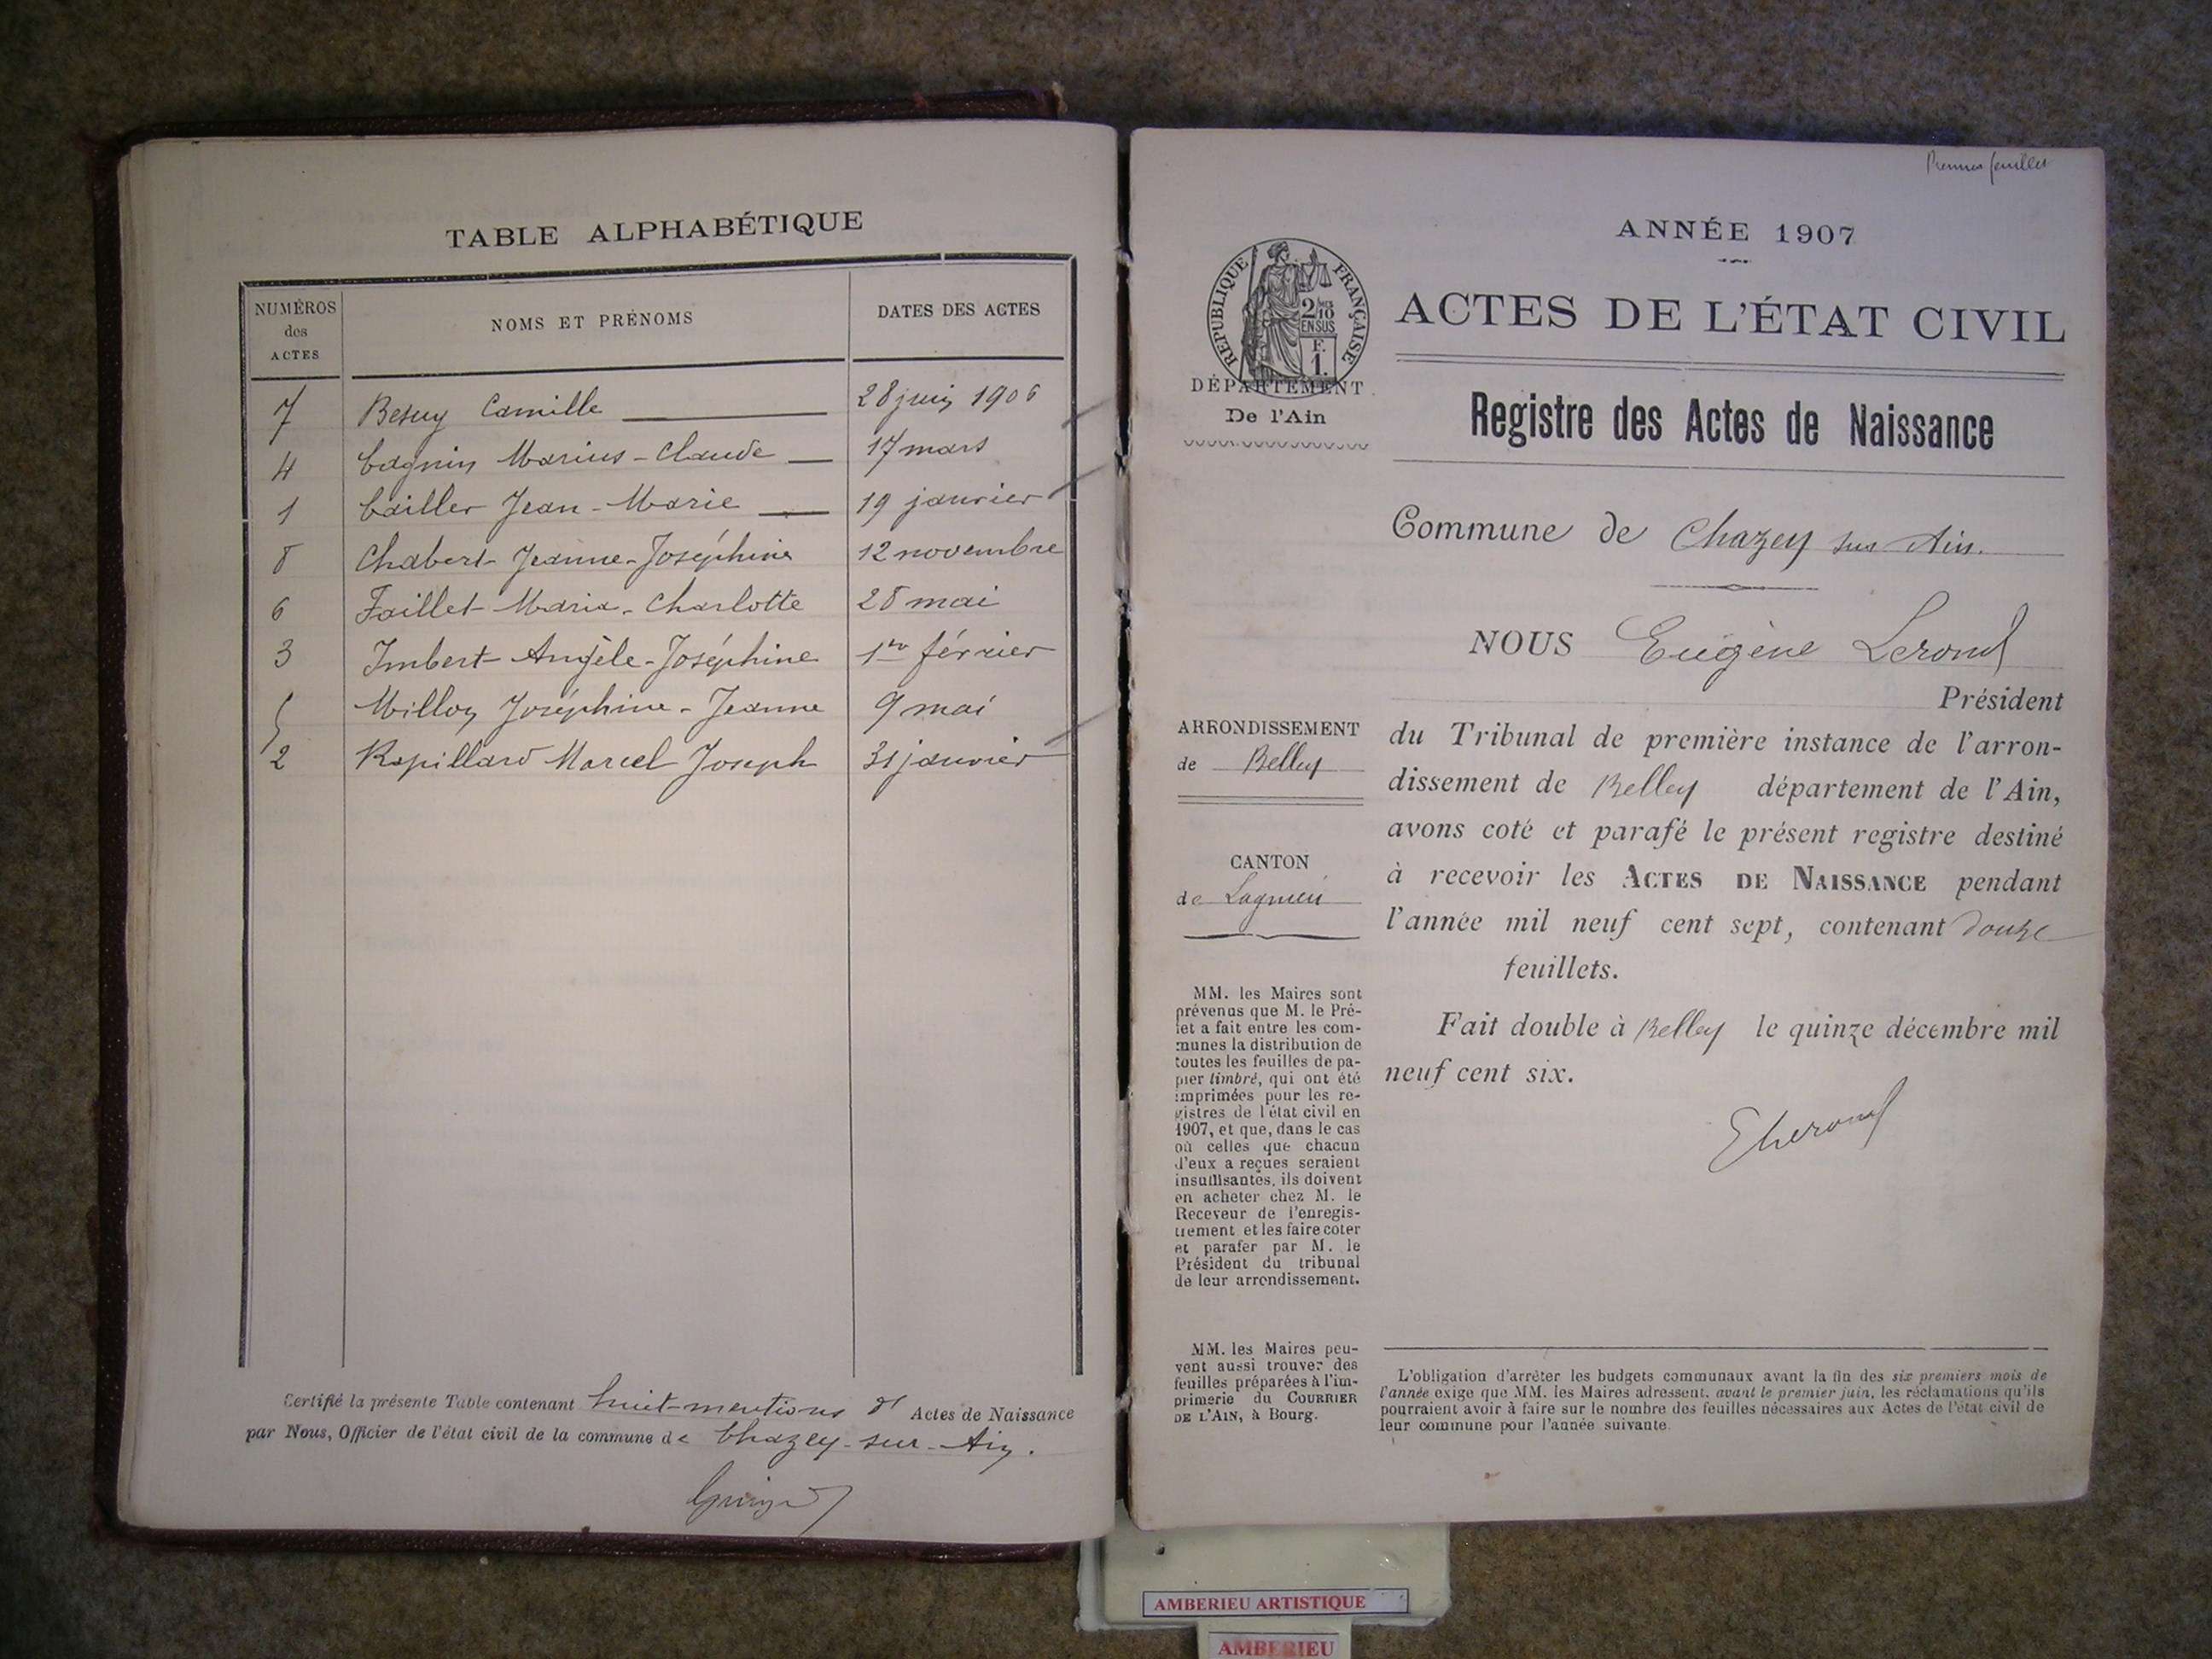 TABLE ALPHABÉTIQUE
NUMÉROS des ACTES
NOMS ET PRÉNOMS
DATES DES ACTES
7 Camille 28 juin 1906
4 Cagnin Marius-Claude 17 mars
1 Cailler Jean-Marie 19 janvier
8 Chabert Jeanne-Joséphine 12 novembre
6 Faillet Maria-Charlotte 28 mai
3 Imbert Angèle-Joséphine 1er février
5 Millon Joséphine-Jeanne 9 mai
2 Rapillard Marcel Joseph 31 janvier
Certifié la présente Table contenant huit mentions d' Actes de Naissance
par Nous, Officier de l'état civil de la commune de Chazey-sur-Ain.
Premier feuillet
ANNÉE 1907
RÉPUBLIQUE FRANÇAISE
2/10
EN SUS
F.
1.
ACTES DE L'ÉTAT CIVIL
DÉPARTEMENT
De l'Ain
Registre des Actes de Naissance
Commune de Chazey sur Ain.
NOUS Eugène Lerond
Président
ARRONDISSEMENT
de Belley
du Tribunal de première instance de l'arron-
dissement de Belley département de l'Ain,
avons coté et parafé le présent registre destiné
à recevoir les ACTES DE NAISSANCE pendant
l'année mil neuf cent sept, contenant douze
feuillets.
Fait double à Belley le quinze décembre mil
neuf cent six.
ELerond
CANTON
de Lagnieu
MM. les Maires sont
prévenus que M. le Pré-
fet a fait entre les com-
munes la distribution de
toutes les feuilles de pa-
pier timbré, qui ont été
imprimées pour les re-
gistres de l'état civil en
1907, et que, dans le cas
où celles que chacun
d'eux a reçues seraient
insuffisantes, ils doivent
en acheter chez M. le
Receveur de l'enregis-
trement et les faire coter
et parafer par M. le
Président du tribunal
de leur arrondissement.
MM. les Maires peu-
vent aussi trouver des
feuilles préparées à l'im-
primerie du COURRIER
DE L'AIN, à Bourg.
L'obligation d'arrêter les budgets communaux avant la fin des six premiers mois de
l'année exige que MM. les Maires adressent, avant le premier juin, les réclamations qu'ils
pourraient avoir à faire sur le nombre des feuilles nécessaires aux Actes de l'état civil de
leur commune pour l'année suivante.
AMBERIEU ARTISTIQUE
AMBERIEU